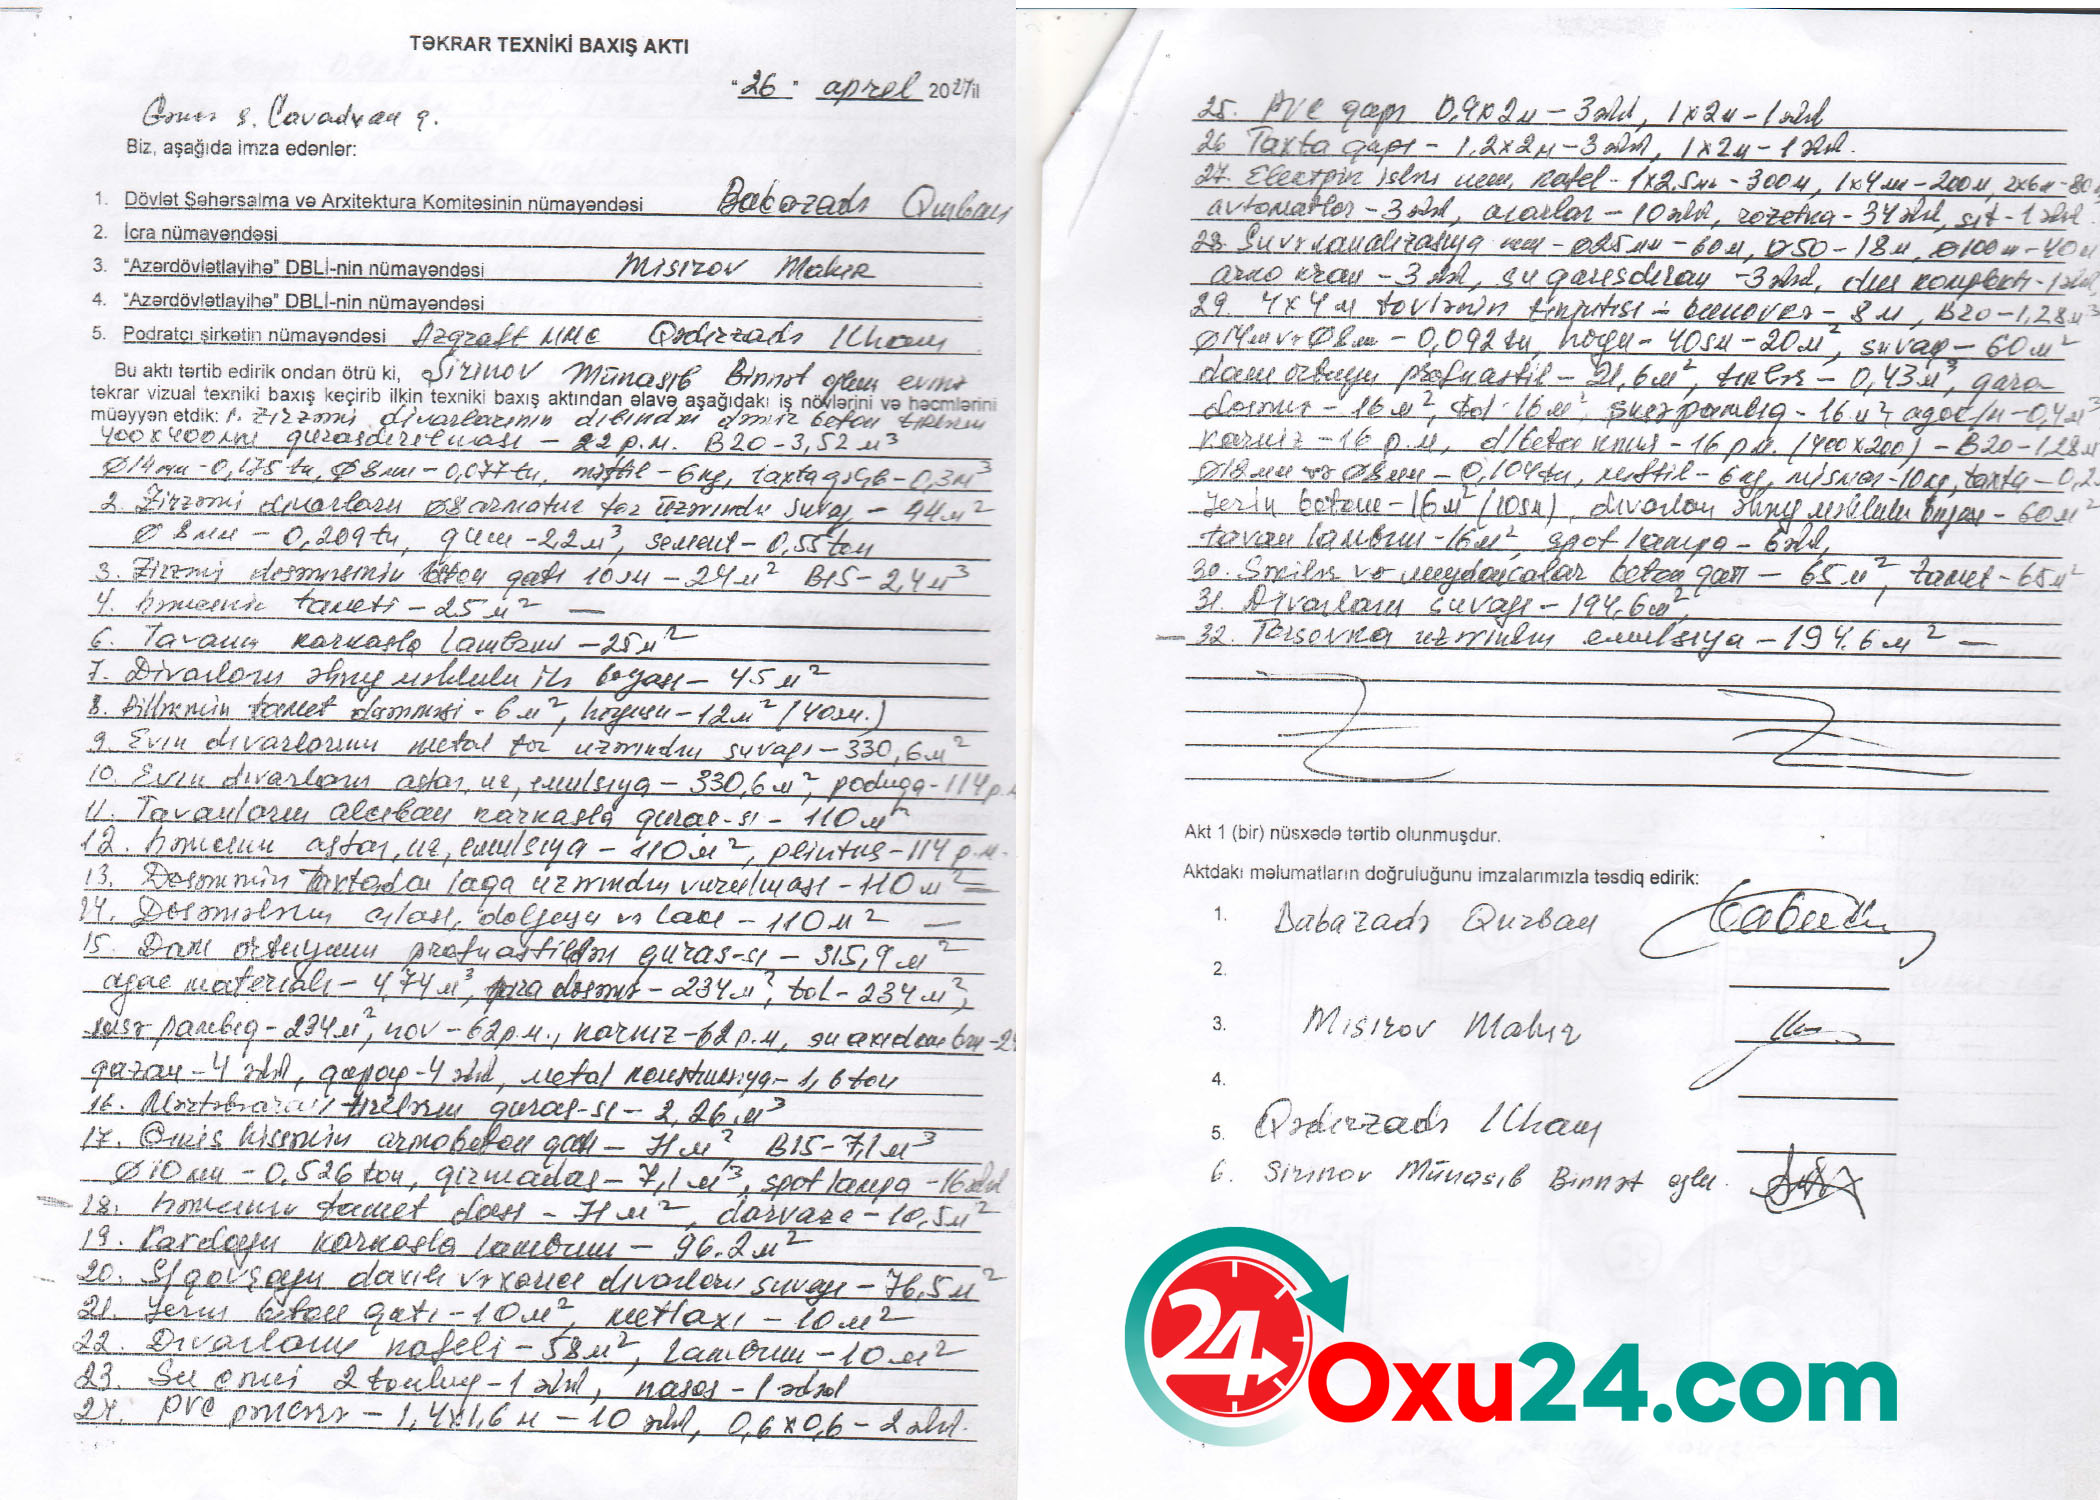 TƏKRAR TEXNİKİ BAXIŞ AKTI
"26" aprel 202 il
Biz, aşağıda imza edənlər:
1. Dövlət Şəhərsalma və Arxitektura Komitəsinin nümayəndəsi Babazadə Qurban
2. İcra nümayəndəsi
3. "Azərdövlətlayihə" DBLİ-nin nümayəndəsi Misirov Mahir
4. "Azərdövlətlayihə" DBLİ-nin nümayəndəsi
5. Podratçı şirkətin nümayəndəsi Azgraft MMC Qədirzadə İlham
Bu aktı tərtib edirik ondan ötrü ki, Şirinov Münasib Binnət oğlu evinə
təkrar vizual texniki baxış keçirib ilkin texniki baxış aktından əlavə aşağıdakı iş növlərini və həcmlərini
müəyyən etdik: 1. Zirzəmi divarlarının dibindən dəmir beton
400x400мм quraşdırılması – 22 p.м. B20-3,52 м³
Ø14мм-0,175 tn, Ø8мм-0,077 tn, - 6 kg, taxta qəlib-0,3м³
2. Zirzəmi divarların Ø8 armatur tor üzərindən suvaq – 44м²
Ø8мм – 0,209 tn, qum -2,2м³, sement-0,55 ton
3. Zirzəmi döşəməsinin beton qatı 10sм – 24м² B15-2,4м³
4. həmçinin tameti – 25м² —
6. Tavanın karkasla lambızı – 25м²
7. Divarların əhəng məhlulu ilə boyası – 45м²
8. Pilləkənin tamet döşəməsi - 6м², hoqusu-12м² (40sм.)
9. Evin divarlarının metal tor üzərindən suvağı – 330,6м²
10. Evin divarların astar, üz, emulsiya – 330,6м², poduqa-114 p.м
11. Tavanların alçıban karkasla quraş-sı – 110м²
12. həmçinin astar, üz, emulsiya – 110м², plintus-114 p.м.
13. Döşəmənin taxtadan laqa üzərindən vurulması – 110м²
14. Döşəmələrin cilası, dolğusu və lakı – 110м² —
15. Dam örtüyünün profnastildən quraş-sı – 315,9м²
ağac materialı – 4,74м³, qara döşəmə – 234м², tol – 234м²,
şüşə pambıq-234м², nov – 62 p.м., karniz-62 p.м,
qazan-4 ədəd, qapaq-4 ədəd, metal konstruksiya-1,6 ton
16. Mərtəbəarası tirlərin quraş-sı – 2,26м³
17. hissənin armobeton qatı – 71м², B15-7,1м³
Ø10мм – 0,526 ton, qırmadaş – 7,1м³, spot lampa - 16 ədəd
18. həmçinin tamet daşı – 71м², darvaza – 10,5м²
19. karkasla lambızı – 96.2м²
20. S/qovşağı daxili və xarici divarların suvağı – 76,5м²
21. Yerin beton qatı – 10м², metlaxı – 10м²
22. Divarların kafeli – 58м², lambızı – 10м²
23. Su çəni 2 tonluq-1 ədəd, nasos – 1 ədəd
24. PVC pəncərə – 1,4x1,6м – 10 ədəd, 0,6x0,6 – 2 ədəd.
25. PVC qapı 0,9x2м – 3 ədəd, 1x2м – 1 ədəd
26 Taxta qapı – 1,2x2м – 3 ədəd, 1x2м – 1 ədəd.
27. Elektrik işləri kabel - 1x2,5мм - 300м, 1x4мм - 200м, 2x6м - 80
avtomatlar – 3 ədəd, açarlar – 10 ədəd, rozetka – 34 ədəd, şit - 1 ədəd
28. Su və kanalizasiya - Ø25мм – 60м, Ø50 - 18м, Ø100м - 40м
arko kran – 3 ədəd, su qarışdıran - 3 ədəd, duş komplekti - 1 ədəd
29. 4x4м tövlənin tikintisi – – 8м, B20 – 1,28м³
Ø14мм və Ø8мм – 0,092 tn, hoqu – 40sм – 20м², suvaq – 60м²
dam örtüyü profnastil – 21,6м², tirlər – 0,43м³, qara
döşəmə – 16м², tol - 16м², şüşə pambıq - 16м², ağac/м – 0,4м³
karniz – 16 p.м, d/beton – 16 p.м. (400x200) – B20 - 1,28м
Ø18мм və Ø8мм – 0,104 tn, – 6 kg, mismar - 10 kg, taxta – 0,2
Yerin betonu – 16м² (10sм), divarların əhəng məhlulu boyası – 60м²
tavan lambızı - 16м², spot lampa – 6 ədəd,
30. Səkilər və meydançalar beton qatı – 65м², tamet – 65м²
31. Divarların suvağı – 194,6м²,
32. üzərindən emulsiya – 194,6м² —
Akt 1 (bir) nüsxədə tərtib olunmuşdur.
Aktdakı məlumatların doğruluğunu imzalarımızla təsdiq edirik:
1. Babazadə Qurban
2.
3. Misirov Mahir
4.
5. Qədirzadə İlham
6. Şirinov Münasib Binnət oğlu.
24
Oxu24.com